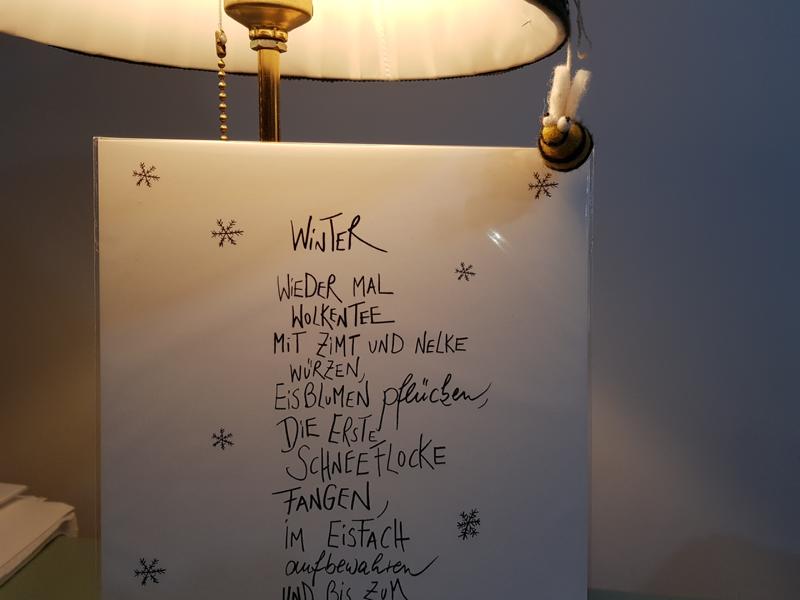 WINTER
WIEDER MAL
WOLKENTEE
MIT ZIMT UND NELKE
WÜRZEN,
EISBLUMEN pflücken,
DIE ERSTE
SCHNEEFLOCKE
FANGEN,
IM EISFACH
aufbewahren
UND BIS ZUM